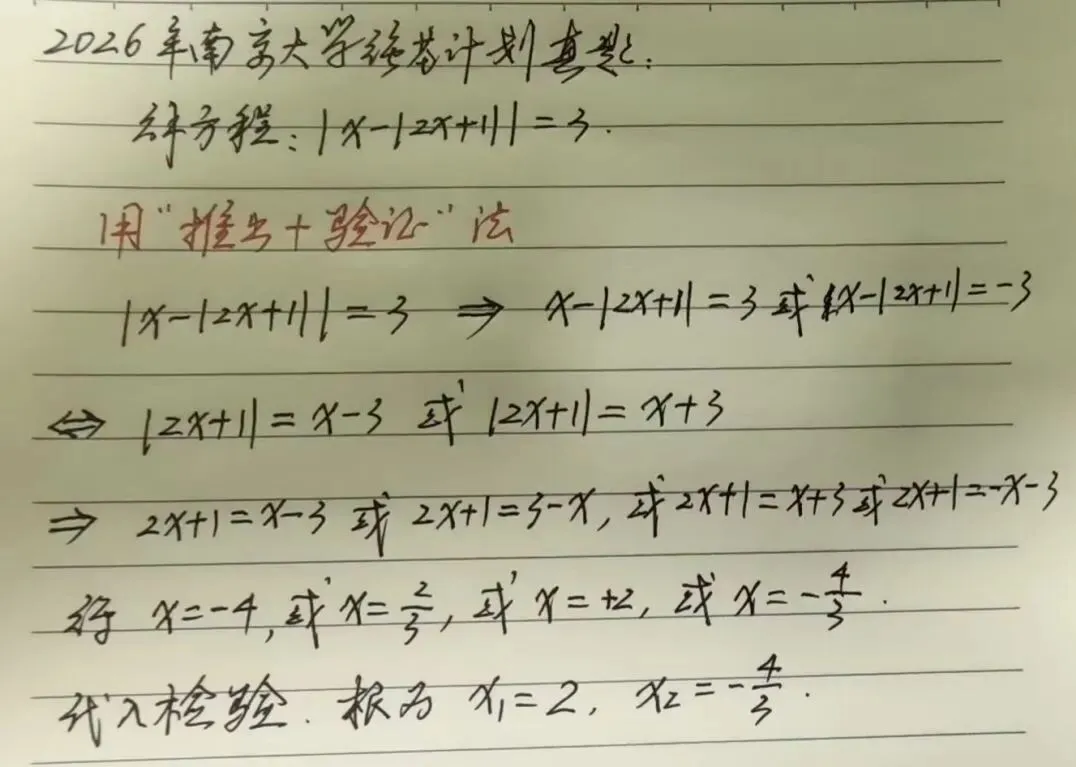 2026年南京大学强基计划真题:
解方程: |x-|2x+1||=3.
用“推出+验证”法
|x-|2x+1||=3 ⇒ x-|2x+1|=3 或 x-|2x+1|=-3
⇔ |2x+1|=x-3 或 |2x+1|=x+3
⇒ 2x+1=x-3 或 2x+1=3-x, 或 2x+1=x+3 或 2x+1=-x-3
得 x=-4, 或 x=2/3, 或 x=+2, 或 x=-4/3.
代入检验. 根为 x₁=2, x₂=-4/3.